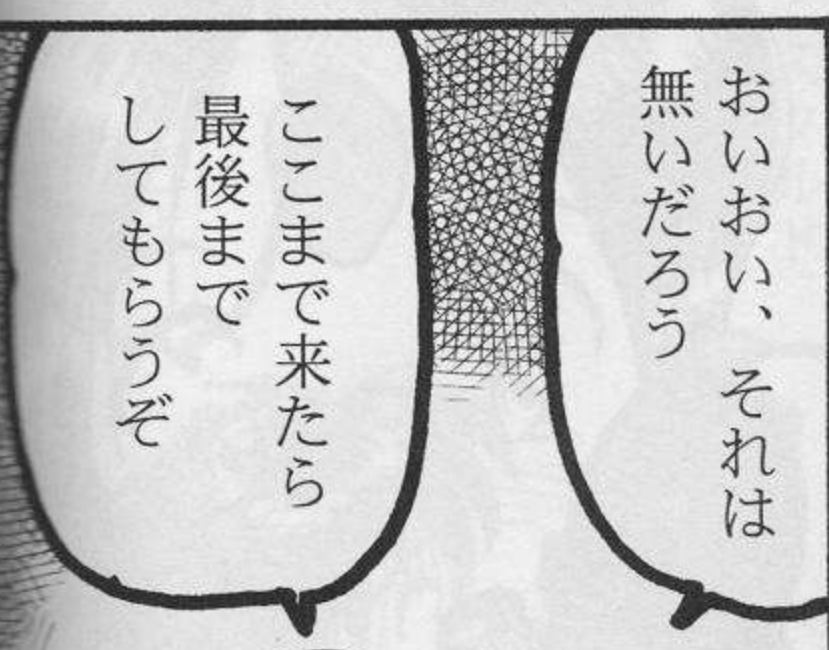 おいおい、それは
無いだろう
ここまで来たら
最後まで
してもらうぞ